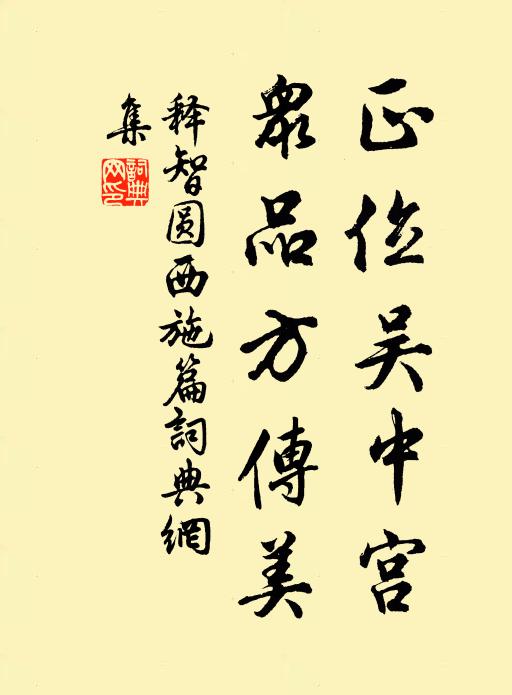 正位吴中宫
眾品方傳美
释智圓西施篇詞典網
集
詞典网印